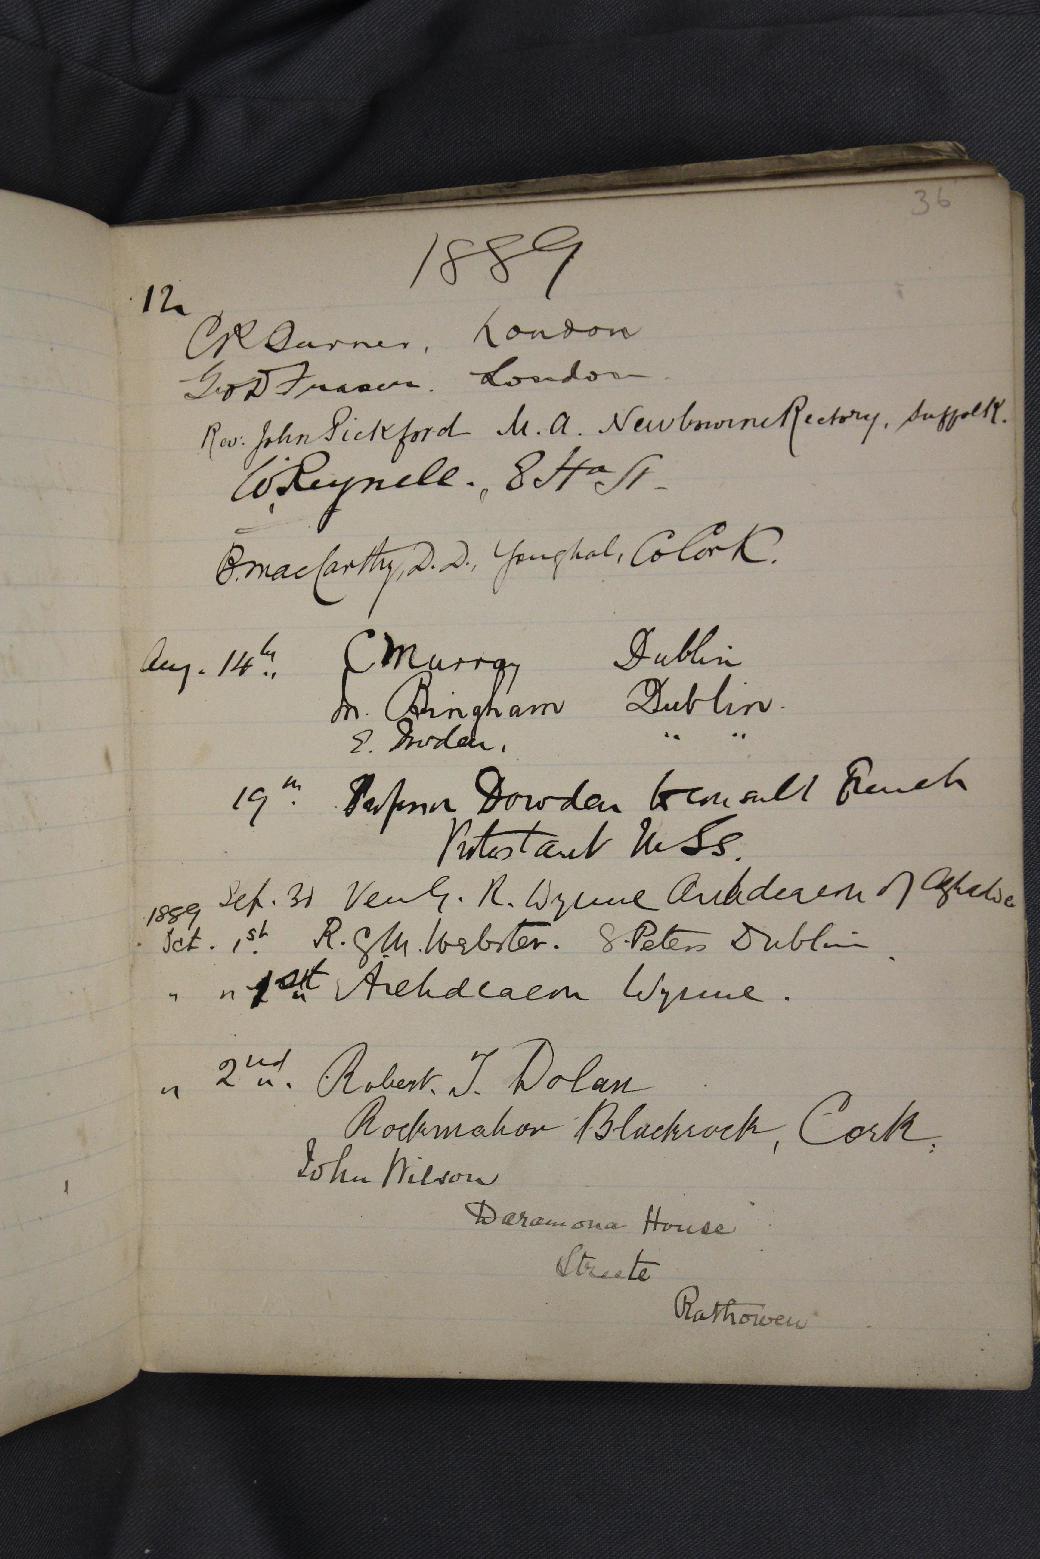 36
1889
12
CR Turner, London
Geo D Fraser. London
Rev: John Pickford M.A. Newbourne Rectory, Suffolk.
W. Reynell., 8 Hy St.
B. MacCarthy, D.D., Youghal, Co Cork.
Aug. 14th. C Murray Dublin
M. Bingham Dublin.
E. " "
19th. Professor Dowden to consult French
Protestant MSS.
Sep. 30 Ven G. R. Wynne Archdeacon of Aghadoe
1889
Oct. 1st R. G. M. Webster. S. Peters Dublin
" " 1st Archdeacon Wynne.
" 2nd. Robert. T. Dolan
Rockmahon Blackrock, Cork.
John Wilson
Daramona House
Streete
Rathowen